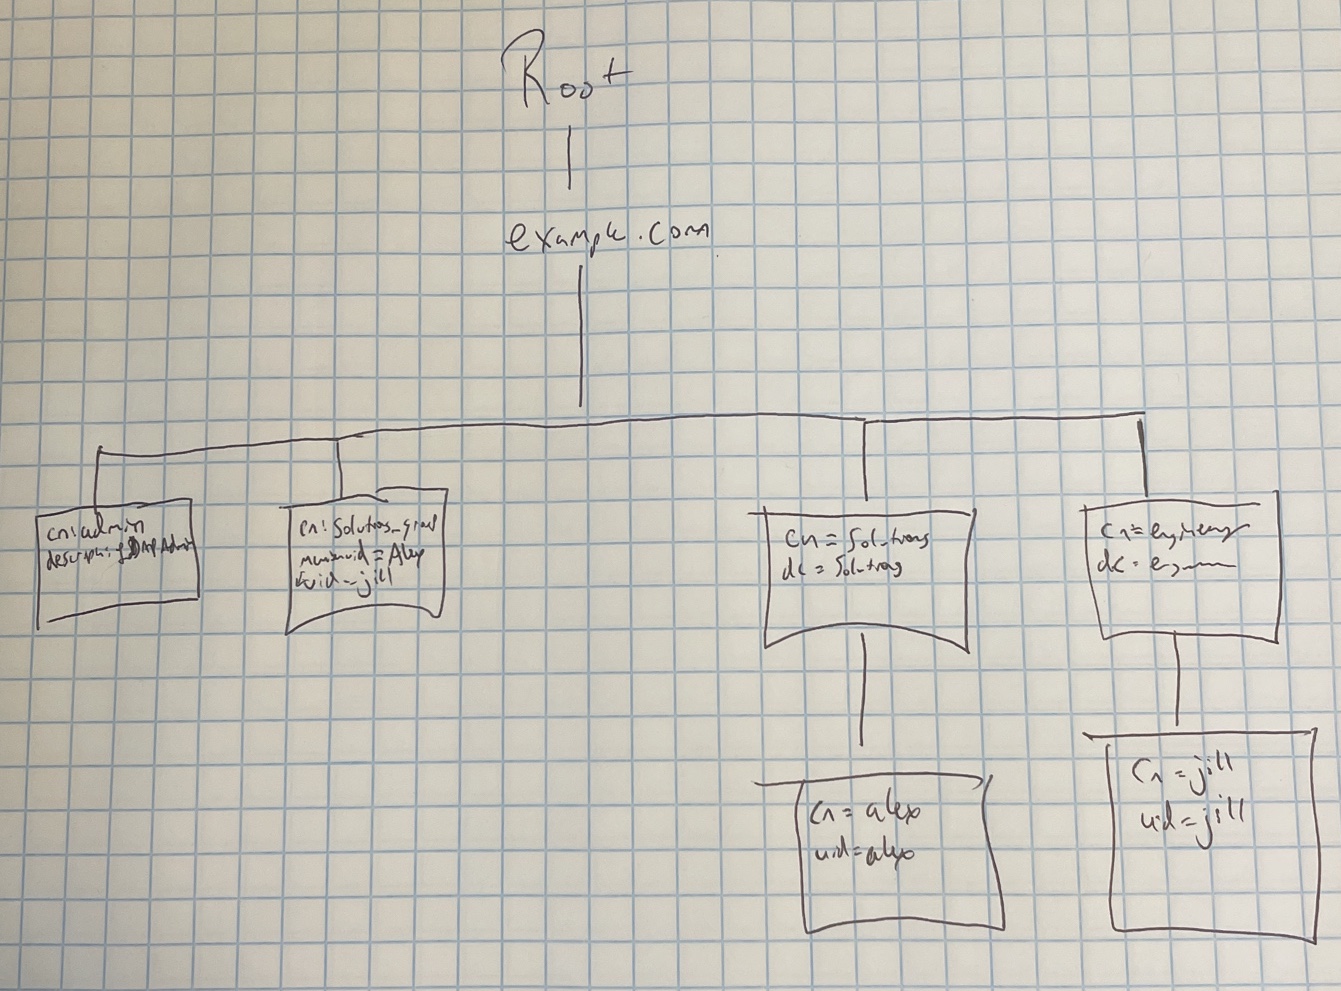 Root
example.com
cn: admin
LDAP Admin
cn: Solutions_group
memberuid = Alex
uid = jill
cn = Solutions
dc = Solutions
cn = engineering
dc =
cn = alex
uid = alex
cn = jill
uid = jill